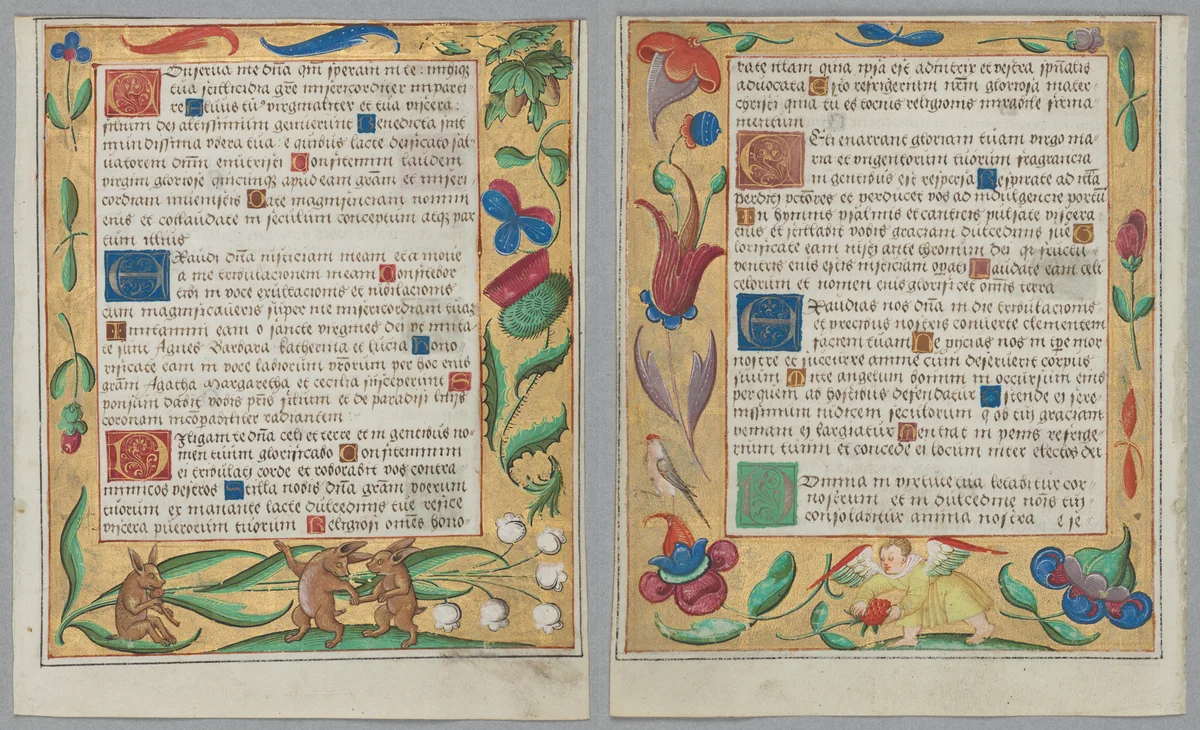 Conserva me dn̄a qm̄ speravi in te : mihiq̄
tua stillicidia grē misericorditer imparti
re Et uius tu virginaliter et tua viscera :
filium dei altissimum genuerunt Benedicta sint
mundissima ubera tua : e quibus lacte deificato sal-
uatorem dn̄m enutristi Confitemini laudem
virgini gloriose quicunque apud eam grām et miseri
cordiam inuenistis Date magnificenciam nomini
eius et collaudate in seculum conceptum atq̄ par
tum illius
Exaudi dn̄a iusticiam meam et a moue
a me tribulacionem meam Confitebor
tibi in voce exultacionis et iubilacionis
cum magnificaueris super me misericordiam tuā
Imitamini eam o sancte virgines dei ut imita
te sunt Agnes Barbara katherina et lucia Hono-
rificate eam in voce labiorum vrōrum per hoc enī
grām Agatha Margaretha et cecilia susceperunt S
ponsum dabit vobis prīs filium et de paradisi lilijs
coronam incōpabiliter radiantem :
Diligam te dn̄a celi et terre et in gentibus no-
men tuum glorificabo Confitemini
ei tribulati corde et roborabit vos contra
inimicos vestros Stilla nobis dn̄a grām uberum
tuorum ex manante lacte dulcedinis tue refice
viscera puerorum tuorum Religiosi omēs hono-
rate illam quia ipsa est adiutrix et vestra spūalis
aduocata Esto refrigerium nrm̄ gloriosa mater
christi quia tu es tocius religionis mirabile firma
mentum
Celi enarrant gloriam tuam virgo ma-
ria et ungentorum tuorum fragrancia
in gentibus est respersa Respirate ad illā
perditi pctores et perducet vos ad indulgencie portū
In hymnis psalmis et canticis pulsate viscera
eius et stillabit vobis graciam dulcedinis sue G
lorificate eam iusti ante thronum dei q fructu
ventris eius estis iusticiam opati Laudate eam celi
celorum et nomen eius glorificet omis terra
Exaudias nos dn̄a in die tribulacionis
et precibus nostris conuerte clementem
faciem tuam Ne pycias nos in tpe mor
nostre et succurre anime cum deseruerit corpus
suum Mitte angelum bonum in occursum eius
per quem ab hostibus defendatur Ostende ei sere
nissimum iudicem seculorum q ob tui graciam
veniam ei largiatur Sentiat in penis refrige-
rium tuum et concede ei locum inter electos dei
Domina in virtute tua letabitur cor-
nostrum et in dulcedine nois tui
consolabitur anima nostra